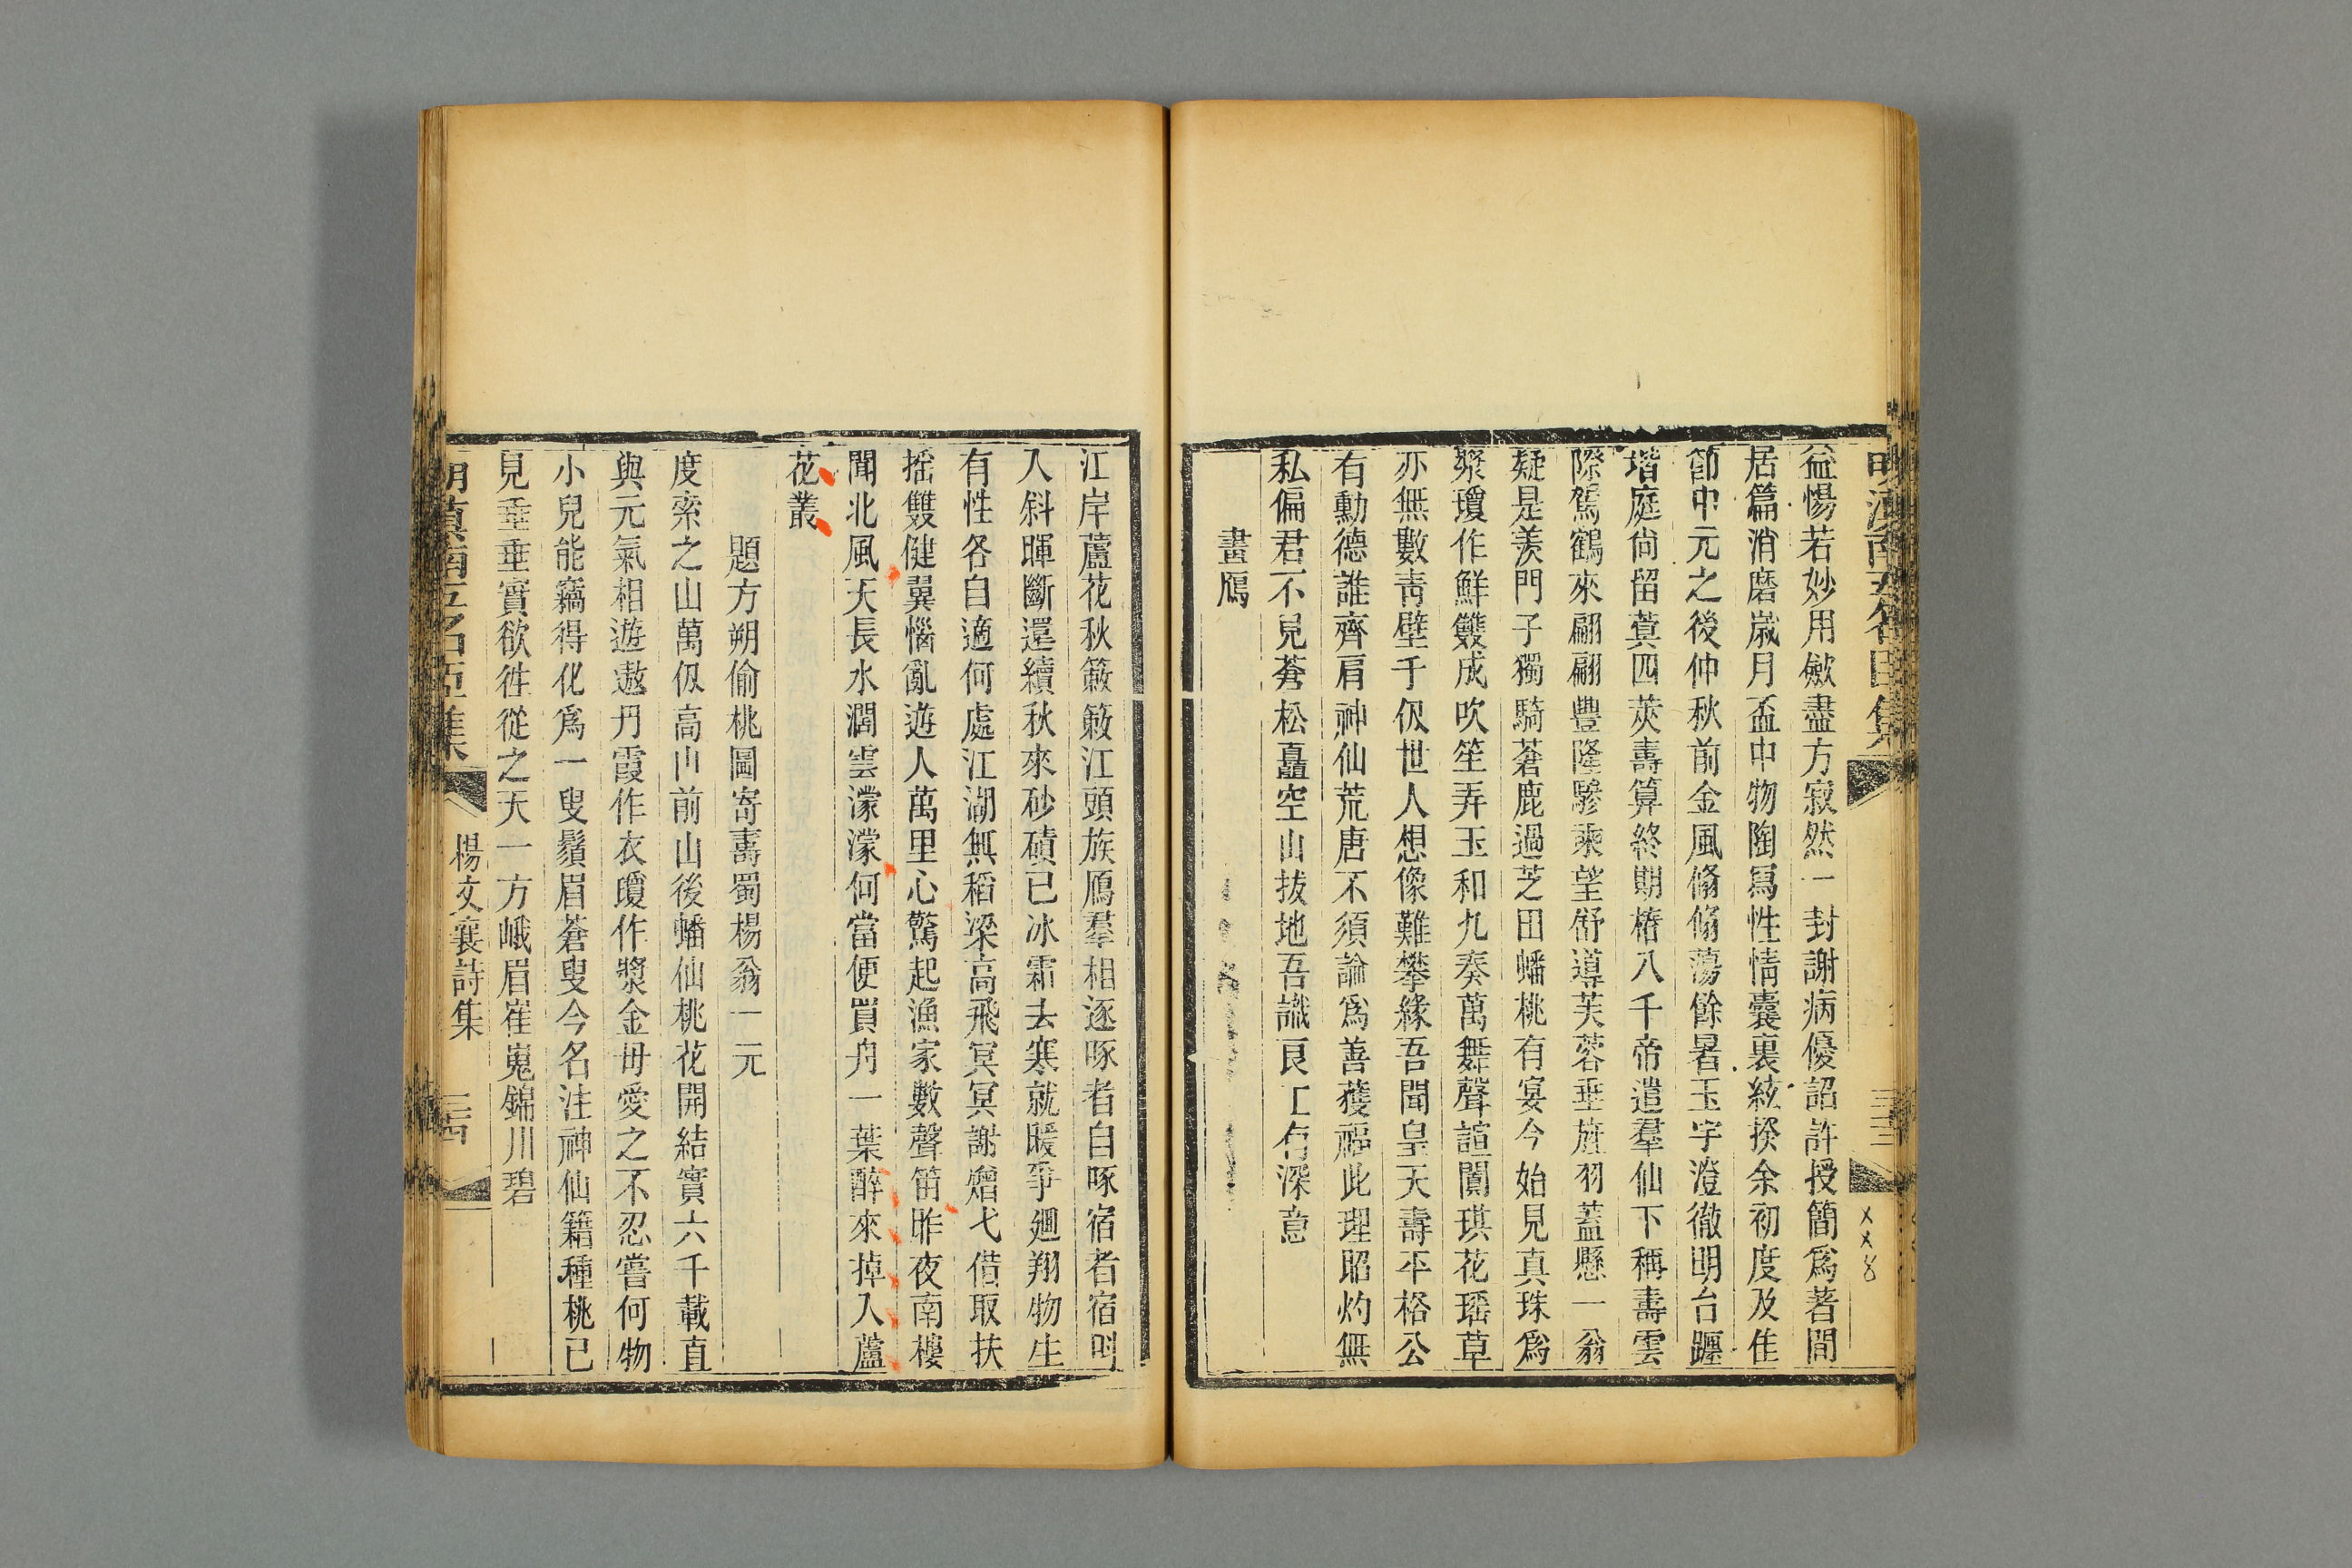 益惕若妙用斂盡方寂然一封謝病優詔許授簡爲著閒
居篇消磨歲月盃中物陶寫性情囊裏絃揆余初度及佳
節中元之後仲秋前金風翛翛蕩餘暑玉宇澄徹明台躔
堦庭尙留蓂四莢壽算終期樁八千帝遣羣仙下稱壽雲
際鴐鶴來翩翩豐隆驂乘望舒導芙蓉垂旌羽蓋懸一翁
疑是羨門子獨騎蒼鹿過芝田蟠桃有宴今始見真珠爲
漿瓊作鮮雙成吹笙弄玉和九奏萬舞聲諠闐琪花瑶草
亦無數靑壁千仭世人想像難攀緣吾聞皇天壽平格公
有勳德誰齊肩神仙荒唐不須論爲善獲福此理昭灼無
私偏君不見蒼松矗空山拔地吾識良工有深意
畫鴈
江岸蘆花秋簌簌江頭族鴈羣相逐啄者自啄宿者宿
人斜暉斷還續秋來砂磧已冰霜去寒就暖爭廻翔物生
有性各自適何處江湖無稻粱高飛冥冥謝矰弋借取扶
摇雙健翼惱亂遊人萬里心驚起漁家數聲笛昨夜南樓
聞北風天長水濶雲濛濛何當便買舟一葉醉來掉入蘆
花叢
題方朔偷桃圖寄壽蜀楊翁一元
度索之山萬仭高山前山後蟠仙桃花開結實六千載直
與元氣相遊遨丹霞作衣瓊作漿金母愛之不忍嘗何物
小兒能竊得化爲一叟鬚眉蒼叟今名注神仙籍種桃已
見垂垂實欲徃從之天一方峨眉崔嵬錦川碧
明滇南五名臣集
楊文襄詩集
三四